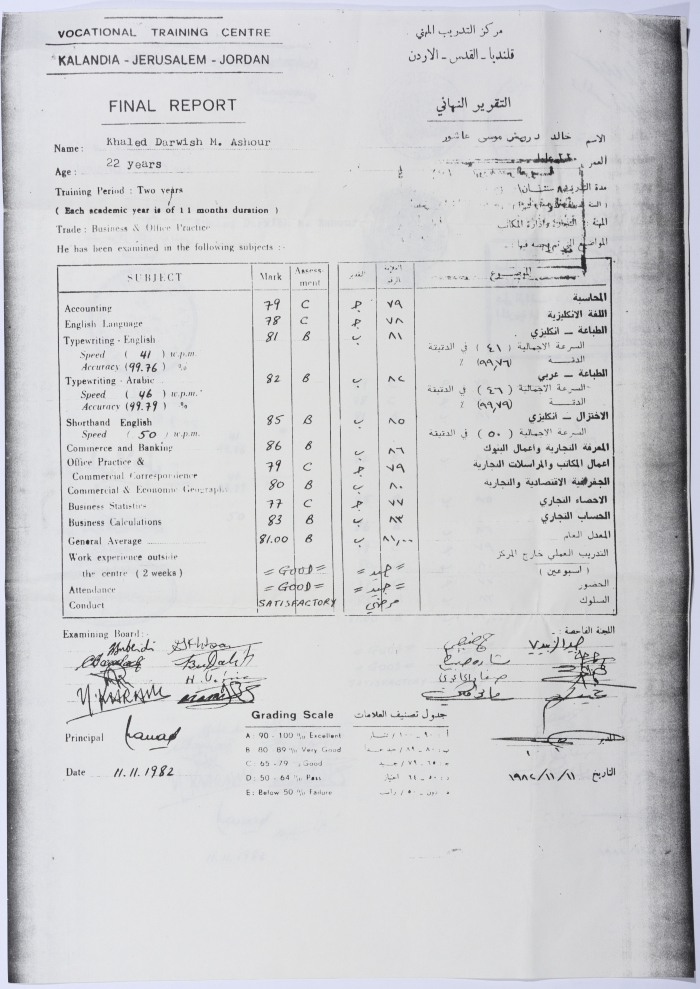 VOCATIONAL TRAINING CENTRE
مركز التدريب المهني
KALANDIA - JERUSALEM - JORDAN
قلنديا - القدس - الاردن
FINAL REPORT
التقرير النهائي
Name: Khaled Darwish M. Ashour
الاسم خالد درويش موسى عاشور
Age: 22 years
العمر
Training Period : Two years
( Each academic year is of 11 months duration )
Trade : Business & Office Practice
He has been examined in the following subjects :-
SUBJECT Mark Assess-ment
الموضوع
Accounting 79 C ج ٧٩ المحاسبة
English Language 78 C ج ٧٨ اللغة الانكليزية
Typewriting - English 81 B ب ٨١ الطباعة - انكليزي
Speed ( 41 ) w.p.m. السرعة الاجمالية ( ٤١ ) في الدقيقة
Accuracy (99.76) % الدقة (٩٩,٧٦) ٪
Typewriting - Arabic 82 B ب ٨٢ الطباعة - عربي
Speed ( 46 ) w.p.m. السرعة الاجمالية ( ٤٦ ) في الدقيقة
Accuracy (99.79) % الدقة (٩٩,٧٩) ٪
Shorthand English 85 B ب ٨٥ الاختزال - انكليزي
Speed ( 50 ) w.p.m. السرعة الاجمالية ( ٥٠ ) في الدقيقة
Commerce and Banking 86 B ب ٨٦ المعرفة التجارية واعمال البنوك
Office Practice &
Commercial Correspondence 79 C ج ٧٩ اعمال المكاتب والمراسلات التجارية
Commercial & Economic Geography 80 B ب ٨٠ الجغرافية الاقتصادية والتجارية
Business Statistics 77 C ج ٧٧ الاحصاء التجاري
Business Calculations 83 B ب ٨٣ الحساب التجاري
General Average 81.00 B ب ٨١,٠٠ المعدل العام
Work experience outside التدريب العملي خارج المركز
the centre ( 2 weeks ) = GOOD = = جيد = ( اسبوعين )
Attendance = GOOD = = جيد = الحضور
Conduct SATISFACTORY مرضي السلوك
Examining Board :
اللجنة الفاحصة :
Grading Scale جدول تصنيف العلامات
A : 90 - 100 % Excellent
B : 80 - 89 % Very Good
C : 65 - 79 % Good
D : 50 - 64 % Pass
E : Below 50 % Failure
Principal
المدير
Date 11.11.1982
التاريخ ١٩٨٢/١١/١١